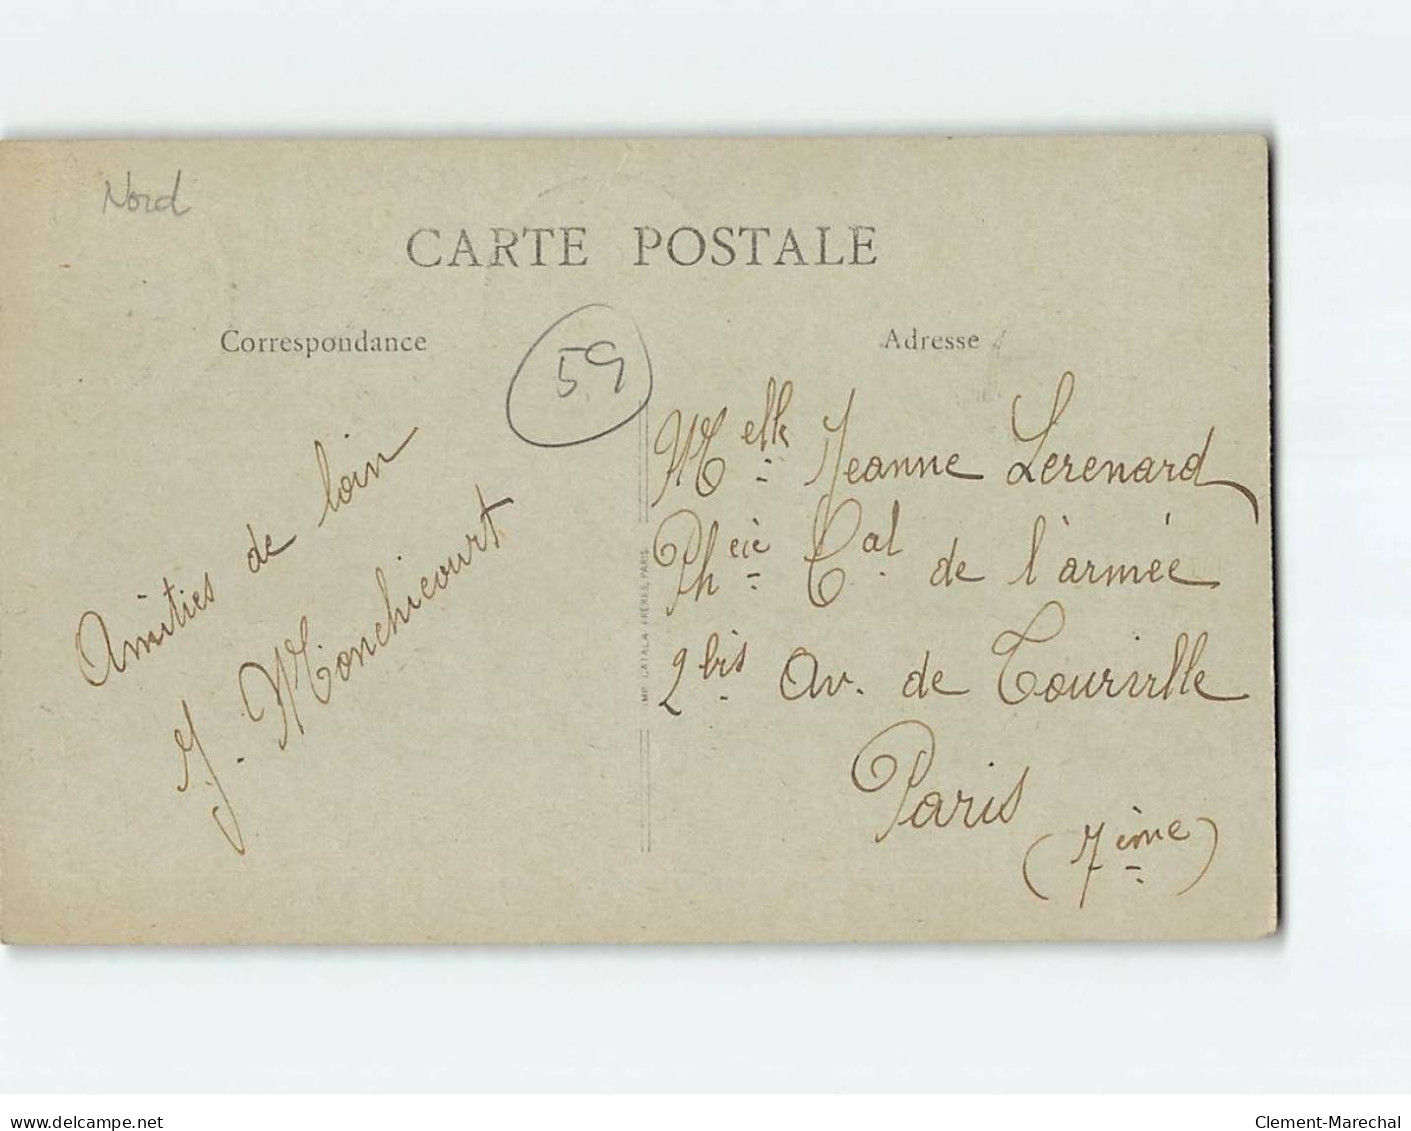 Nord
CARTE POSTALE
Correspondance
59
Adresse
Amitiés de loin
J. Monchicourt
IMP. CATALA FRERES, PARIS
Melle Jeanne Lerenard
Phcie Cal de l'armée
2 bis Av. de Tourville
Paris
(7ème)
delcampe.net
Clement-Marechal